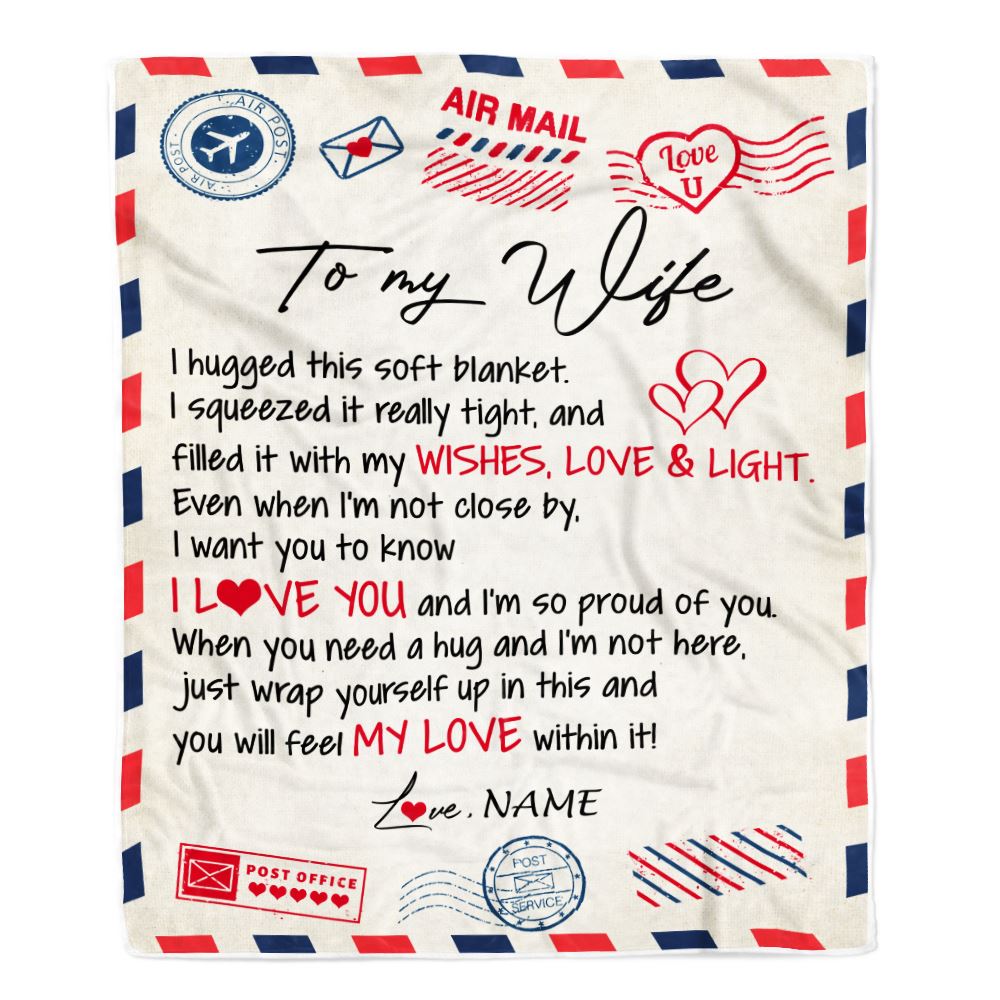 AIR POST
AIR POST
AIR MAIL
Love
U
To my Wife
I hugged this soft blanket.
I squeezed it really tight, and
filled it with my WISHES, LOVE & LIGHT.
Even when I'm not close by,
I want you to know
I L♥VE YOU and I'm so proud of you.
When you need a hug and I'm not here,
just wrap yourself up in this and
you will feel MY LOVE within it!
L♥ve, NAME
POST OFFICE
POST
SERVICE